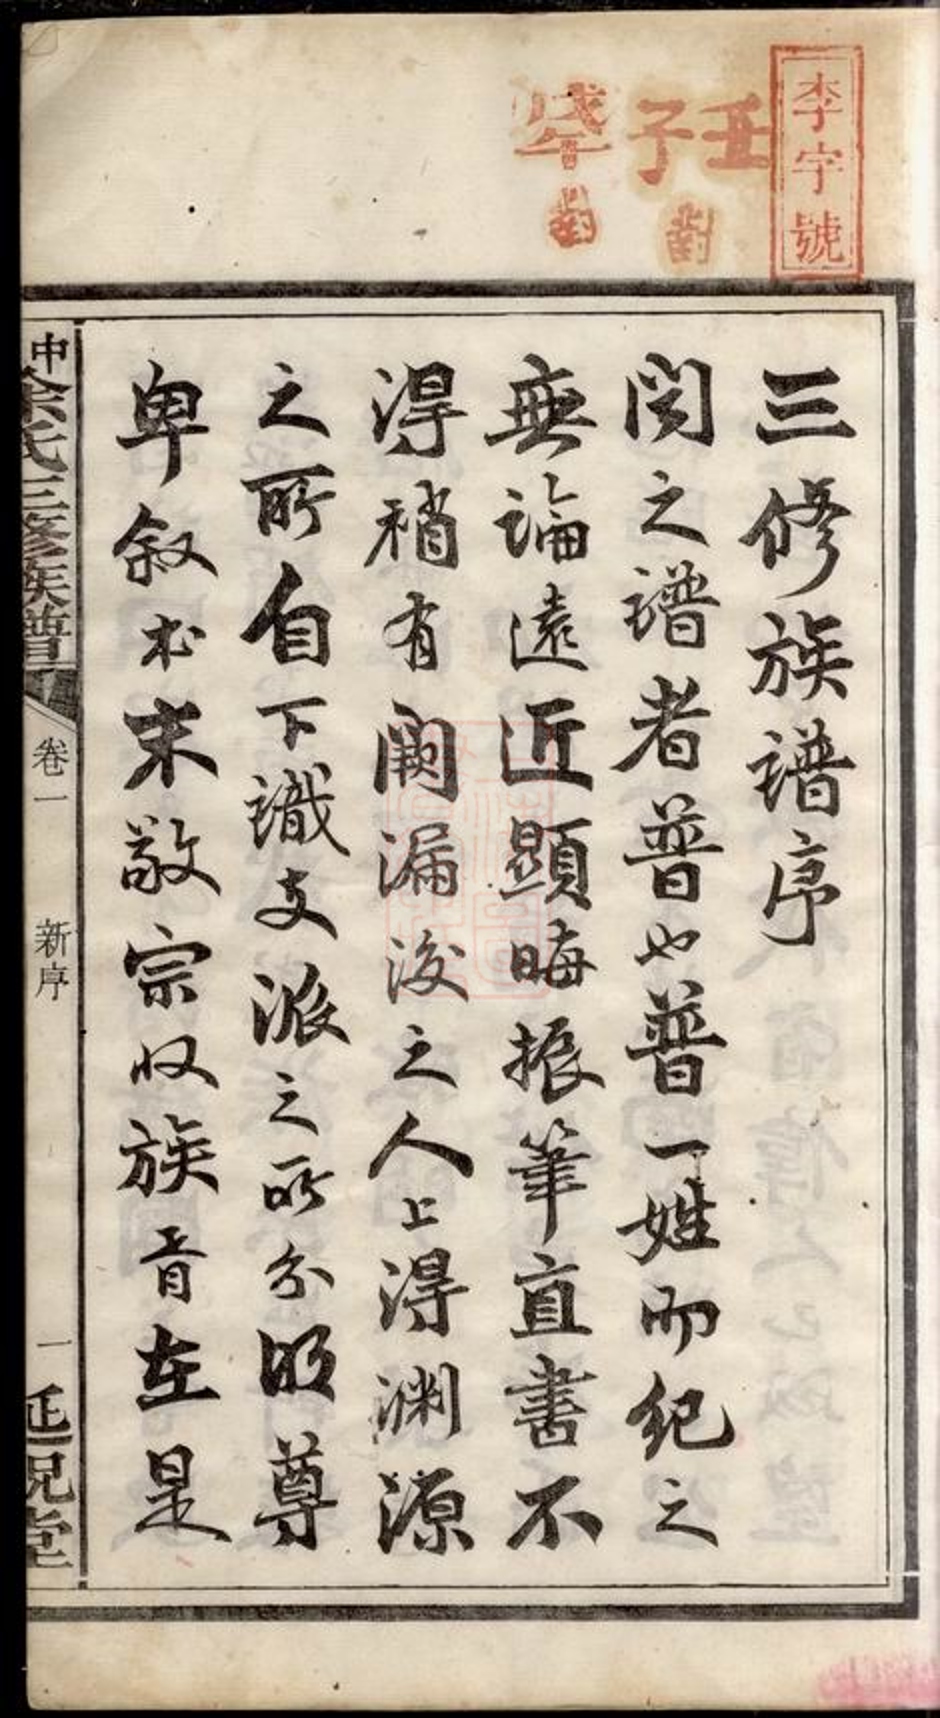 李字號
壬子
對
戊年
對
三修族譜序
閱之譜者普也普一姓而紀之
無論遠近顯晦振筆直書不
淂稍有闕漏後之人上淂淵源
之所自下識支派之所分明尊
卑叙本末敬宗收族胥在是
中余氏三修族譜
卷一
新序
一
延祝堂